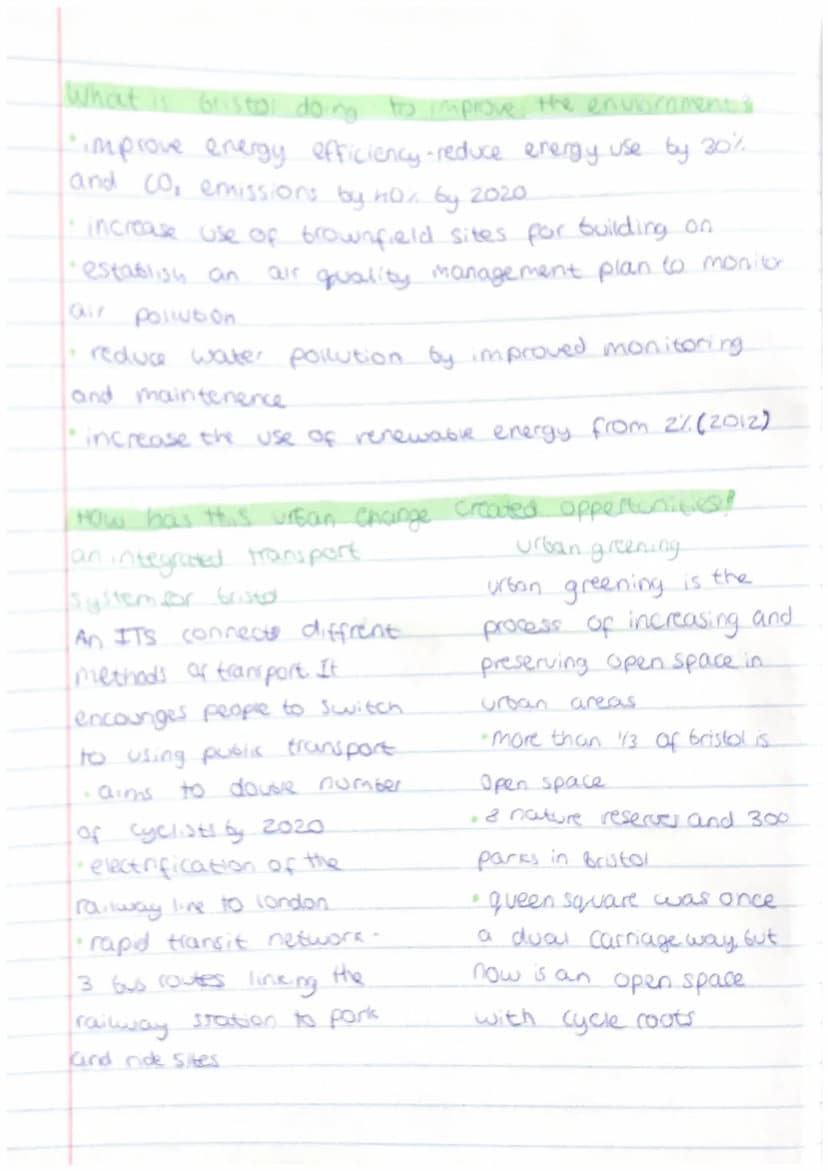 What is bristol doing to improve the enviornment?
• improve energy efficiency-reduce energy use by 30%
and CO₂ emissions by 40% by 2020
• increase use of brownfield sites for building on
• establish an air quality management plan to monitor
air pollution
• reduce water pollution by improved monitoring
and maintenence
• increase the use of renewable energy from 2% (2012)
How has this urban change created oppertunities?
an integrated transport
system for bristol
An ITS connects diffrent
methods of transport. It
encounges people to switch
to using public transport
• aims to double number
of cyclists by 2020
• electrification of the
railway line to london
• rapid transit network -
3 bus routes linking the
railway station to park
and ride sites
urban greening
urban greening is the
process of increasing and
preserving open space in
urban areas
• more than 1/3 of bristol is
open space
• 8 nature reserves and 300
parks in Bristol
• queen square was once
a dual carriageway, but
now is an open space
with cycle roots